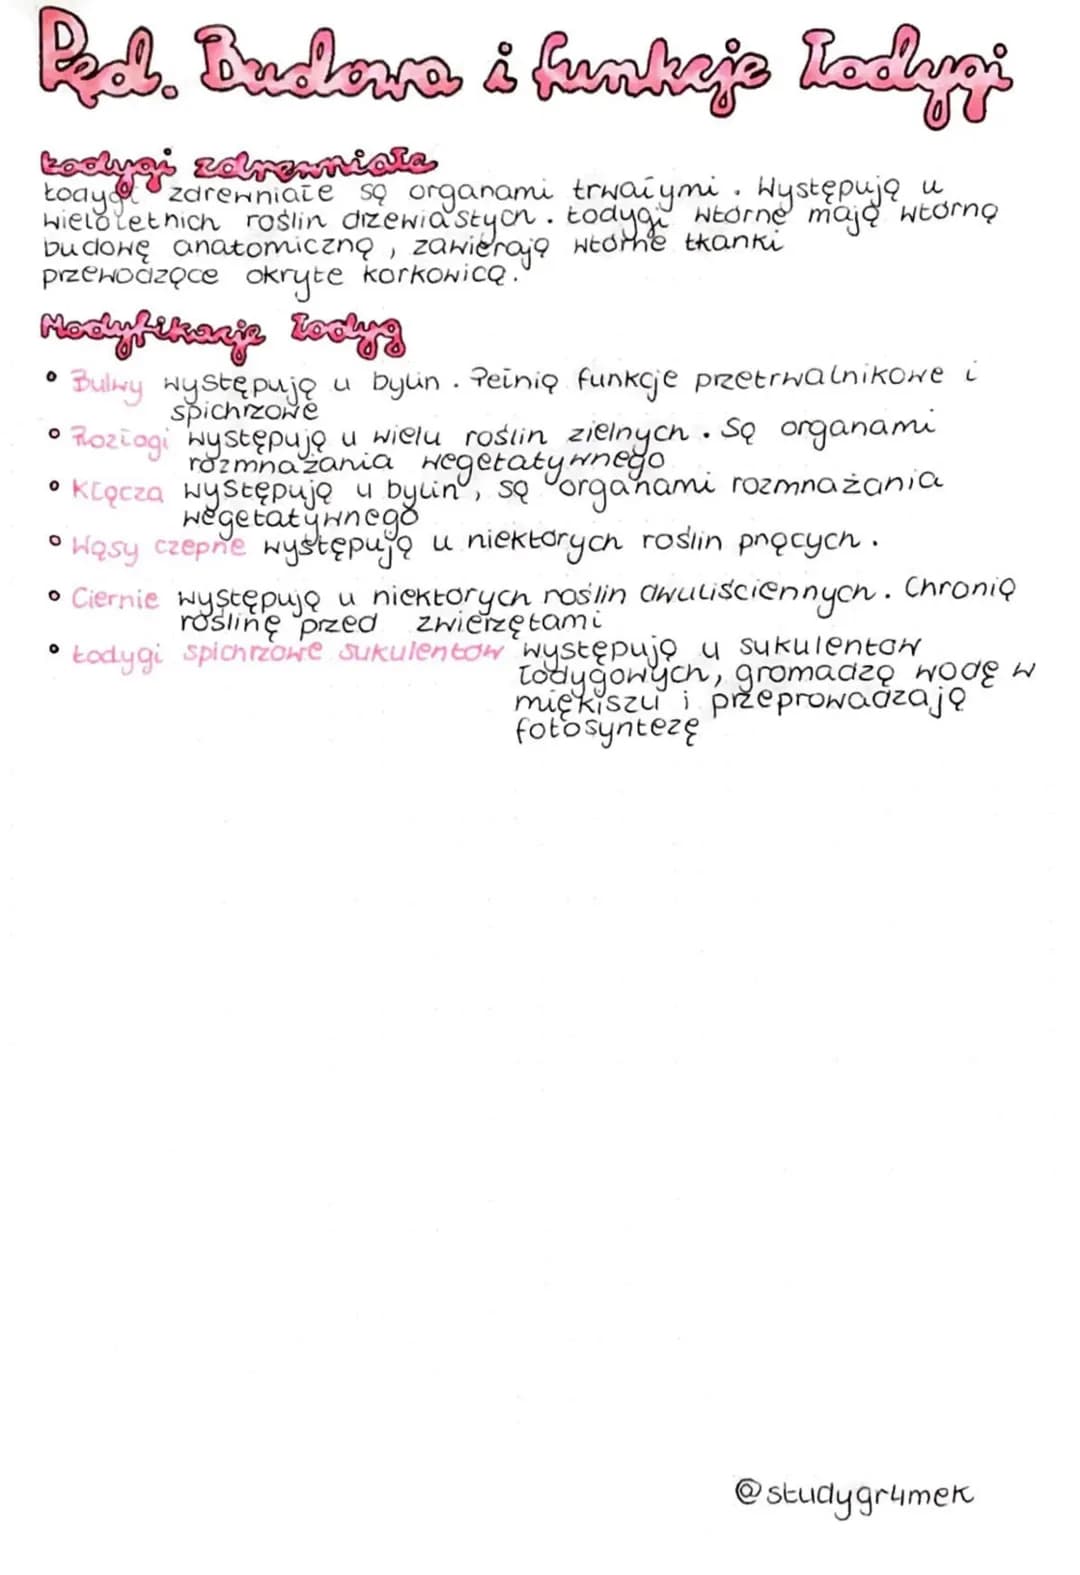 Pęd. Budowa i funkcje łodygi
Łodygi zdrewniałe
Łodygi zdrewniałe są organami trwałymi. Występują u
wieloletnich roślin drzewiastych. Łodygi wtórne mają wtórną
budowę anatomiczną, zawierają wtórne tkanki
przewodzące okryte korkowicą.
Modyfikacje łodyg
• Bulwy występują u bylin. Pełnią funkcje przetrwalnikowe i
spichrzowe
• Rozłogi występują u wielu roślin zielnych. Są organami
rozmnażania wegetatywnego
• Kłącza występują u bylin, są organami rozmnażania
wegetatywnego
• Wąsy czepne występują u niektórych roślin pnących.
• Ciernie występują u niektórych roślin dwuliściennych. Chronią
roślinę przed zwierzętami
• Łodygi spichrzowe sukulentów występują u sukulentów
łodygowych, gromadzą wodę w
miękiszu i przeprowadzają
fotosyntezę
@studygr4mek